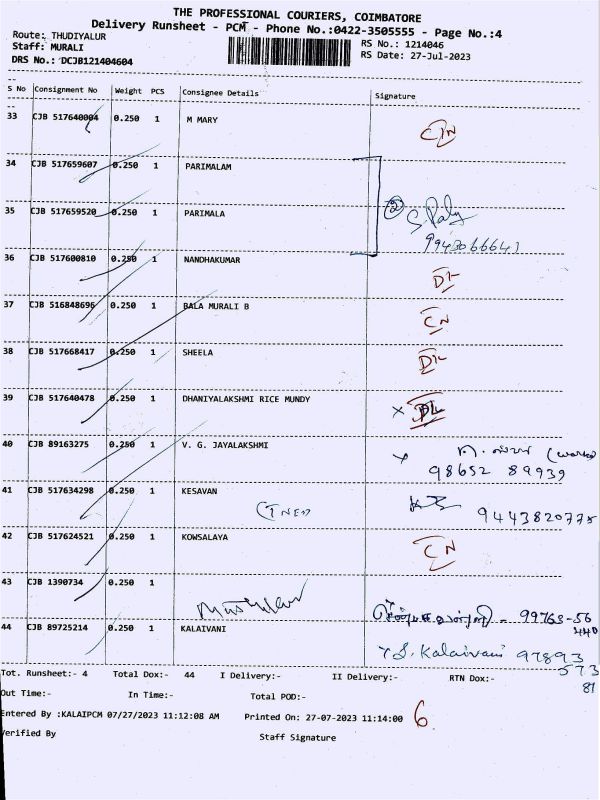 THE PROFESSIONAL COURIERS, COIMBATORE
Delivery Runsheet - PCM - Phone No.:0422-3505555 - Page No.:4
Route: THUDIYALUR
RS No.: 1214046
Staff: MURALI
RS Date: 27-Jul-2023
DRS No.: DCJB121404604
S No Consignment No Weight PCS Consignee Details Signature
33 CJB 517640094 0.250 1 M MARY
34 CJB 517659607 0.250 1 PARIMALAM
35 CJB 517659520 0.250 1 PARIMALA
② 9943066641
36 CJB 517600810 0.250 1 NANDHAKUMAR
DL
37 CJB 516848696 0.250 1 BALA MURALI B
CN
38 CJB 517668417 0.250 1 SHEELA
DL
39 CJB 517640478 0.250 1 DHANIYALAKSHMI RICE MUNDY
x DL
40 CJB 89163275 0.250 1 V. G. JAYALAKSHMI
98652 89939
41 CJB 517634298 0.250 1 KESAVAN
9443820775
42 CJB 517624521 0.250 1 KOWSALAYA
CN
43 CJB 1390734 0.250 1
99763-56
440
44 CJB 89725214 0.250 1 KALAIVANI
S. Kalaivani 97893
573
81
Tot. Runsheet:- 4 Total Dox:- 44 I Delivery:- II Delivery:- RTN Dox:-
Out Time:- In Time:- Total POD:-
Entered By :KALAIPCM 07/27/2023 11:12:08 AM Printed On: 27-07-2023 11:14:00 6
Verified By Staff Signature